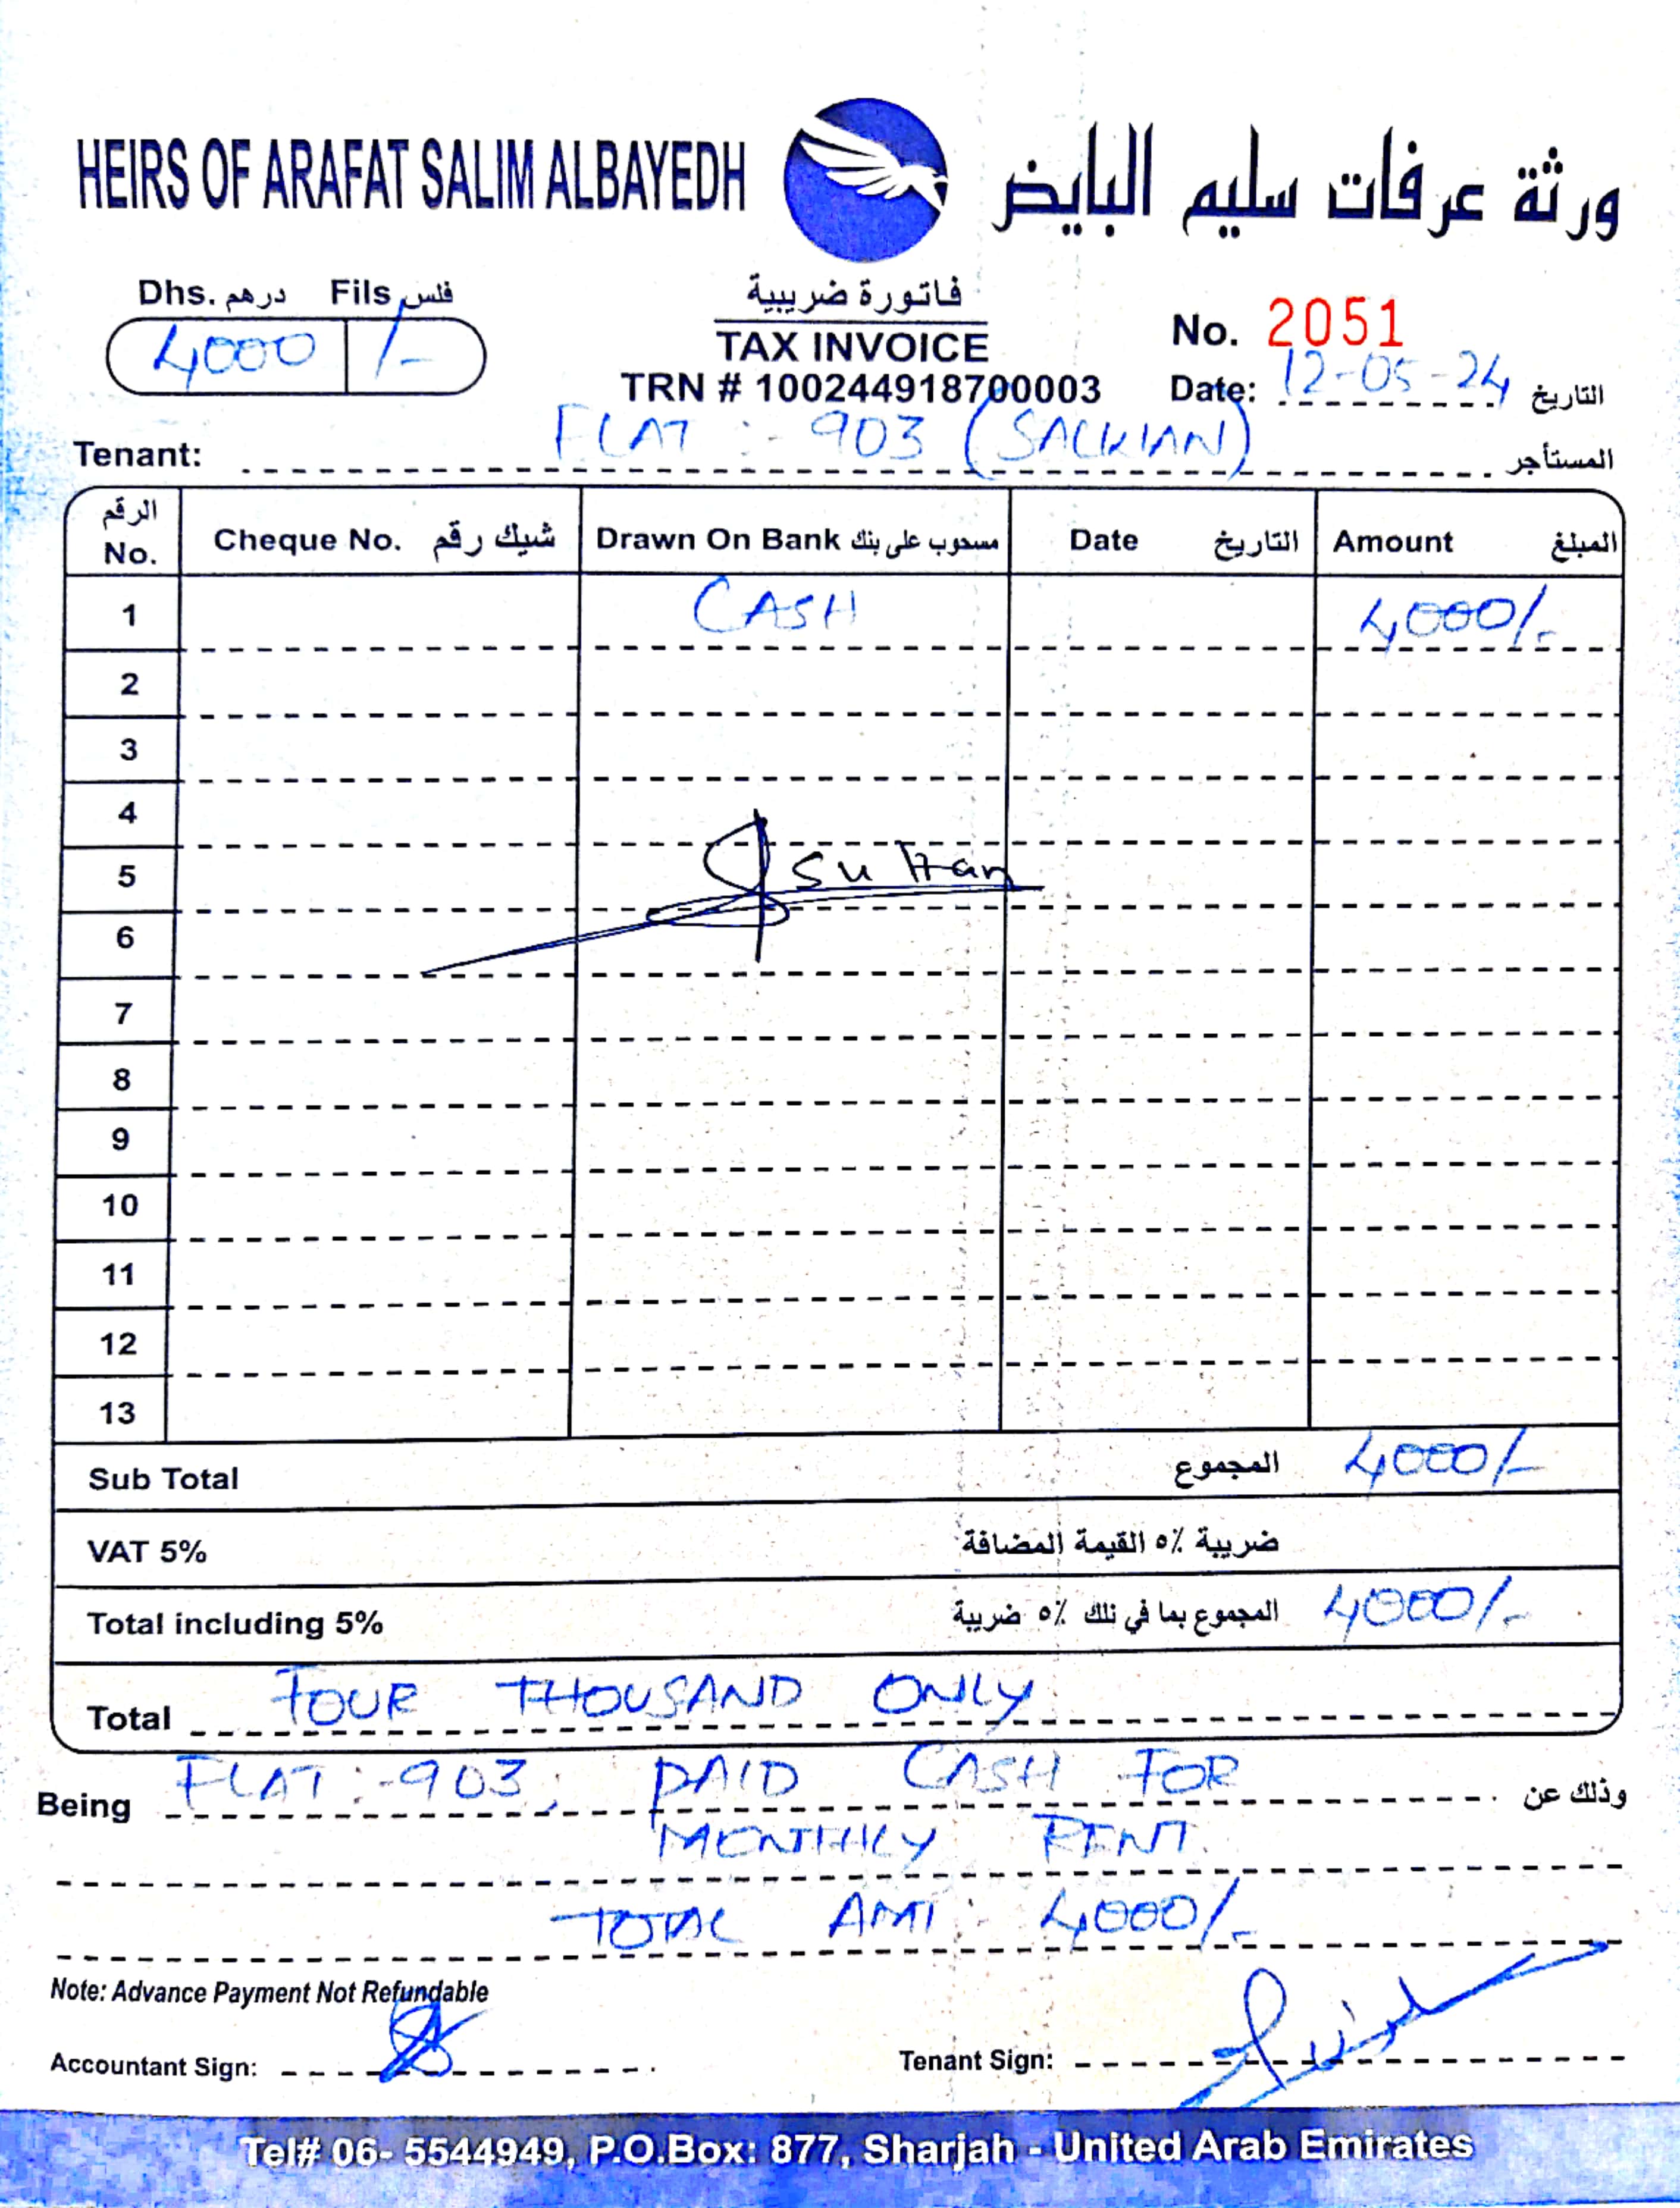 HEIRS OF ARAFAT SALIM ALBAYEDH ورثة عرفات سليم البايض
Dhs. درهم Fils فلس
4000 /-
فاتورة ضريبية
TAX INVOICE
TRN # 100244918700003
No. 2051
Date: 12-05-24 التاريخ
Tenant: FLAT :- 903 (SALKIAN) المستأجر
الرقم No. Cheque No. شيك رقم Drawn On Bank مسحوب على بنك Date التاريخ Amount المبلغ
1 CASH 4000/-
2
3
4
5 Sultan
6
7
8
9
10
11
12
13
Sub Total المجموع 4000/-
VAT 5% ضريبة ٥٪ القيمة المضافة
Total including 5% المجموع بما في ذلك ٥٪ ضريبة 4000/-
Total FOUR THOUSAND ONLY
Being FLAT :- 903, PAID CASH FOR وذلك عن
MONTHLY RENT.
TOTAL AMT : 4000/-
Note: Advance Payment Not Refundable
Accountant Sign: Tenant Sign:
Tel# 06- 5544949, P.O.Box: 877, Sharjah - United Arab Emirates